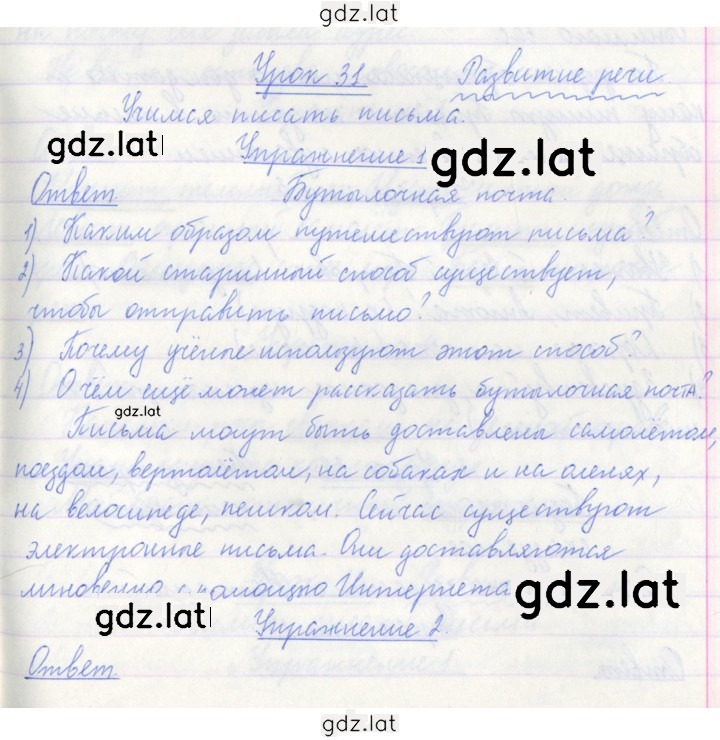 gdz.lat
Урок 31 Развитие речи
Учимся писать письма.
gdz.lat Упражнение 1 gdz.lat
Ответ Бутылочная почта
1) Каким образом путешествуют письма?
2) Какой старинный способ существует,
чтобы отправить письмо?
3) Почему учёные используют этот способ?
4) О чём ещё может рассказать бутылочная почта?
gdz.lat
Письма могут быть доставлены самолётом,
поездом, вертолётом, на собаках и на оленях,
на велосипеде, пешком. Сейчас существуют
электронные письма. Они доставляются
мгновенно помощью Интернета gdz.lat
gdz.lat Упражнение 2.
Ответ
gdz.lat